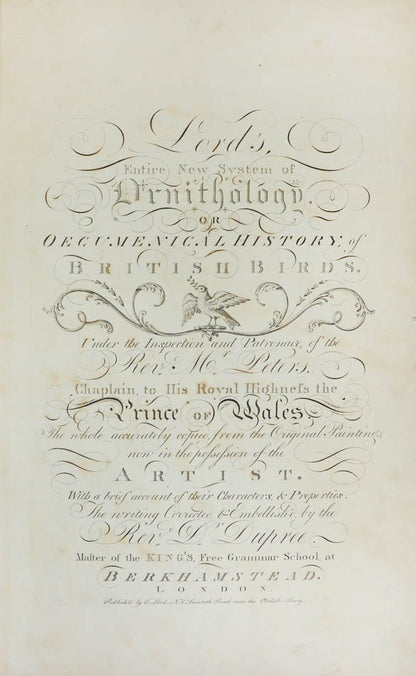 Lord's,
Entire New System of
Ornithology.
OR
OECUMENICAL HISTORY, of
BRITISH BIRDS.
Under the Inspection and Patronage, of the
Rev. Mr. Peters,
Chaplain, to His Royal Highneſs the
Prince of Wales,
The whole accurately copied, from the Original Paintings
now in the poſseſsion of the
ARTIST.
With a brief account of their Characters, & Properties.
The writing Corrected, & Embellish'd, by the
Rev. Dr. Dupree.
Maſter of the KING'S, Free Grammar School, at
BERKHAMSTEAD.
LONDON.
Published by T. Lord, No. Lambeth Road, near the